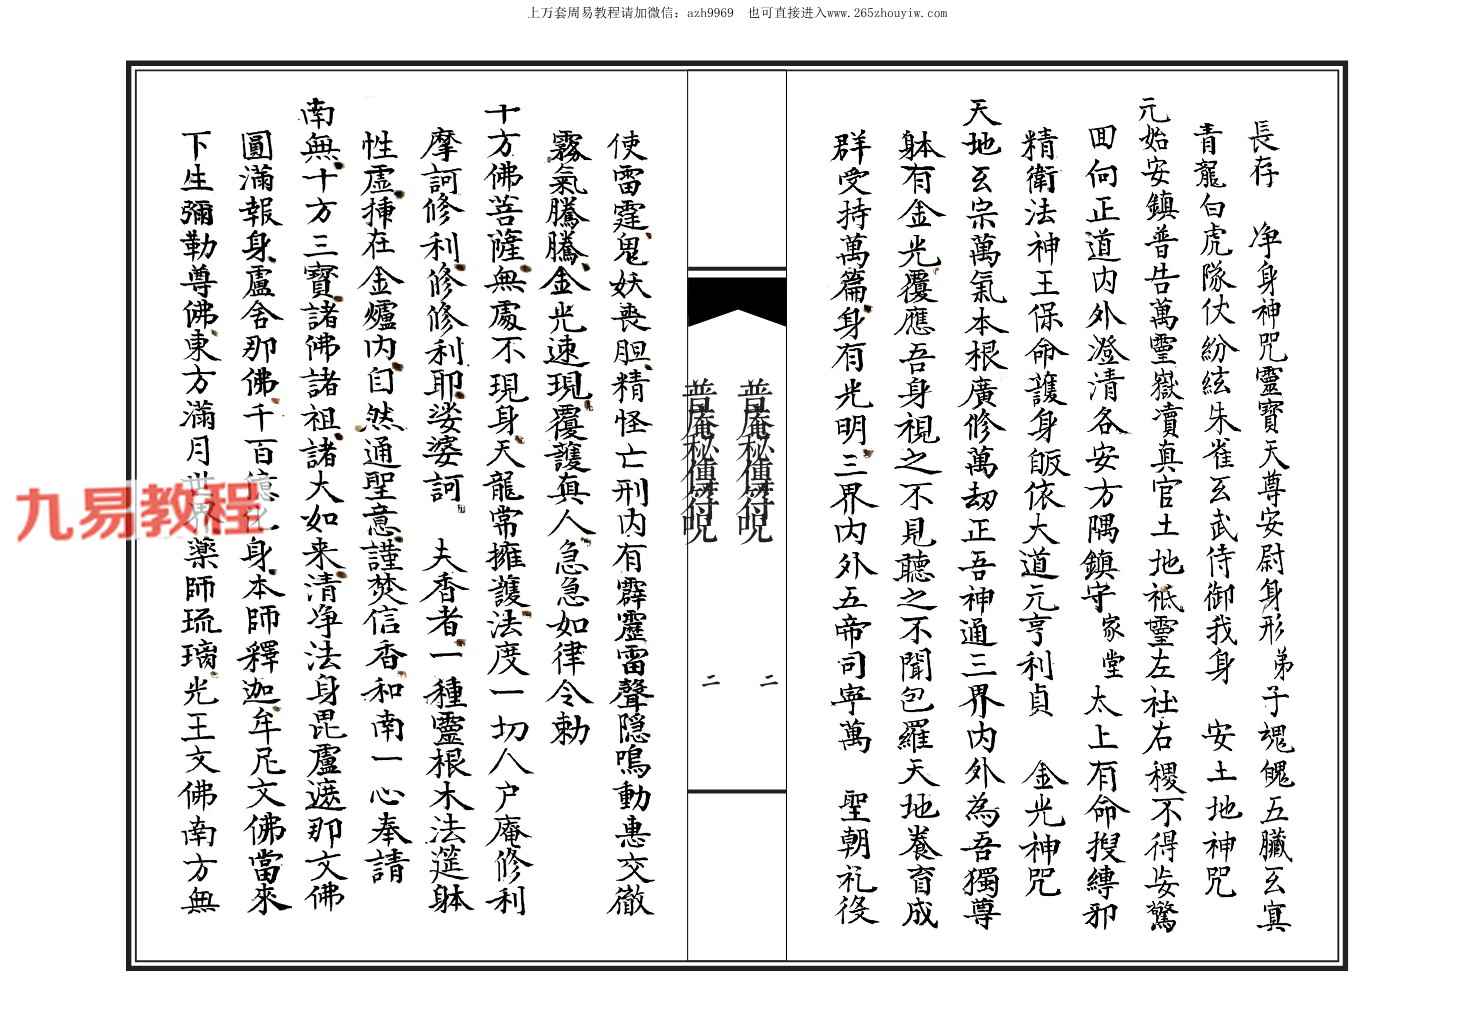 上万套周易教程请加微信：azh9969　也可直接进入www.265zhouyiw.com
長存　净身神咒靈寶天尊安尉身形弟子魂魄五臟玄冥
青龍白虎隊仗紛紜朱雀玄武侍御我身　安土地神咒
元始安鎮普告萬靈嶽瀆真官土地袛靈左社右稷不得妄驚
回向正道内外澄清各安方隅鎮守家堂太上有命搜縛邪
精衛法神王保命護身皈依大道元亨利貞　金光神咒
天地玄宗萬氣本根廣修萬劫正吾神通三界内外為吾獨尊
躰有金光覆應吾身視之不見聽之不聞包羅天地養育成
群受持萬篇身有光明三界内外五帝司寧萬　聖朝礼役
普庵秘傳符咒
二
普庵秘傳符咒
二
使雷霆鬼妖喪胆精怪亡刑内有霹靂雷聲隠鳴動惠交徹
霧氣騰騰金光速現覆護真人急急如律令勅
十方佛菩薩無處不現身天龍常擁護法度一切人户庵修利
摩訶修利修修利耶娑婆訶　夫香者一種靈根木法筵躰
性虛揷在金爐内自然通聖意謹焚信香和南一心奉請
南無十方三寳諸佛諸祖諸大如来清净法身毘盧遮那文佛
圓滿報身盧舍那佛千百億化身本師釋迦牟尼文佛當來
下生彌勒尊佛東方滿月世界藥師琉璃光王文佛南方無
九易教程